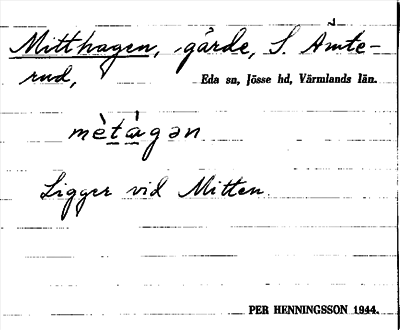 Mitthagen, gärde, S. Ämte-
rud,
Eda sn, Jösse hd, Värmlands län.
mètàgən
Ligger vid Mitten.
PER HENNINGSSON 1944.